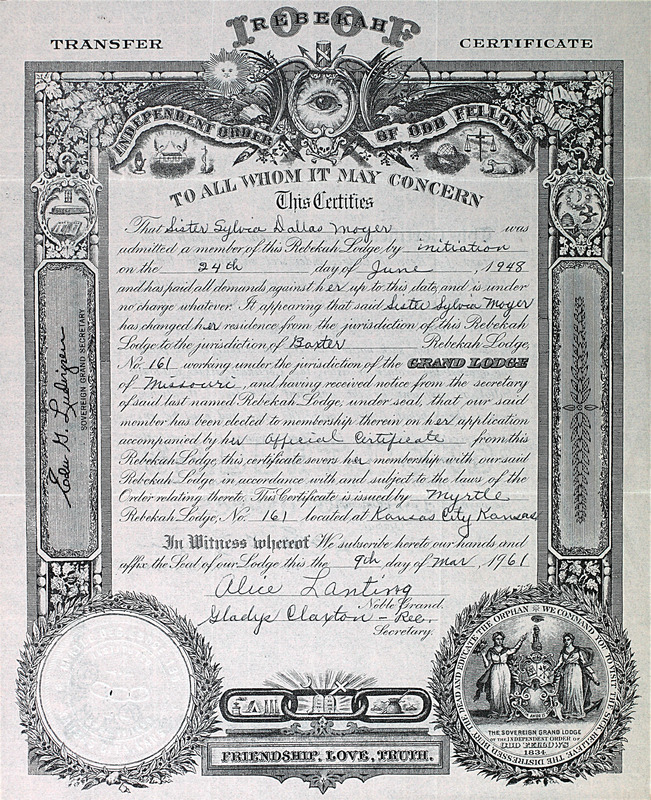 IOOF
REBEKAH
TRANSFER CERTIFICATE
INDEPENDENT ORDER OF ODD FELLOWS
TO ALL WHOM IT MAY CONCERN
This Certifies
That Sister Sylvia Dallas Moyer was
admitted a member of this Rebekah Lodge by initiation
on the 24th day of June, 1948
and has paid all demands against her up to this date, and is under
no charge whatever. It appearing that said Sister Sylvia Moyer
has changed her residence from the jurisdiction of this Rebekah
Lodge to the jurisdiction of Baxter Rebekah Lodge,
No. 161 working under the jurisdiction of the GRAND LODGE
of Missouri, and having received notice from the secretary
of said last named Rebekah Lodge, under seal, that our said
member has been elected to membership therein on her application
accompanied by her Official Certificate from this
Rebekah Lodge, this certificate severs her membership with our said
Rebekah Lodge in accordance with and subject to the laws of the
Order relating thereto. This Certificate is issued by Myrtle
Rebekah Lodge, No. 161 located at Kansas City Kansas
In Witness whereof We subscribe hereto our hands and
affix the Seal of our Lodge this the 9th day of Mar, 1961
Alice Lanting
Noble Grand.
Gladys Claxton - Rec.
Secretary.
SOVEREIGN GRAND SECRETARY
FRIENDSHIP, LOVE, TRUTH.
WE COMMAND YOU TO VISIT THE SICK, RELIEVE THE DISTRESSED, BURY THE DEAD AND EDUCATE THE ORPHAN
THE SOVEREIGN GRAND LODGE
OF THE INDEPENDENT ORDER OF
ODD FELLOWS
1834